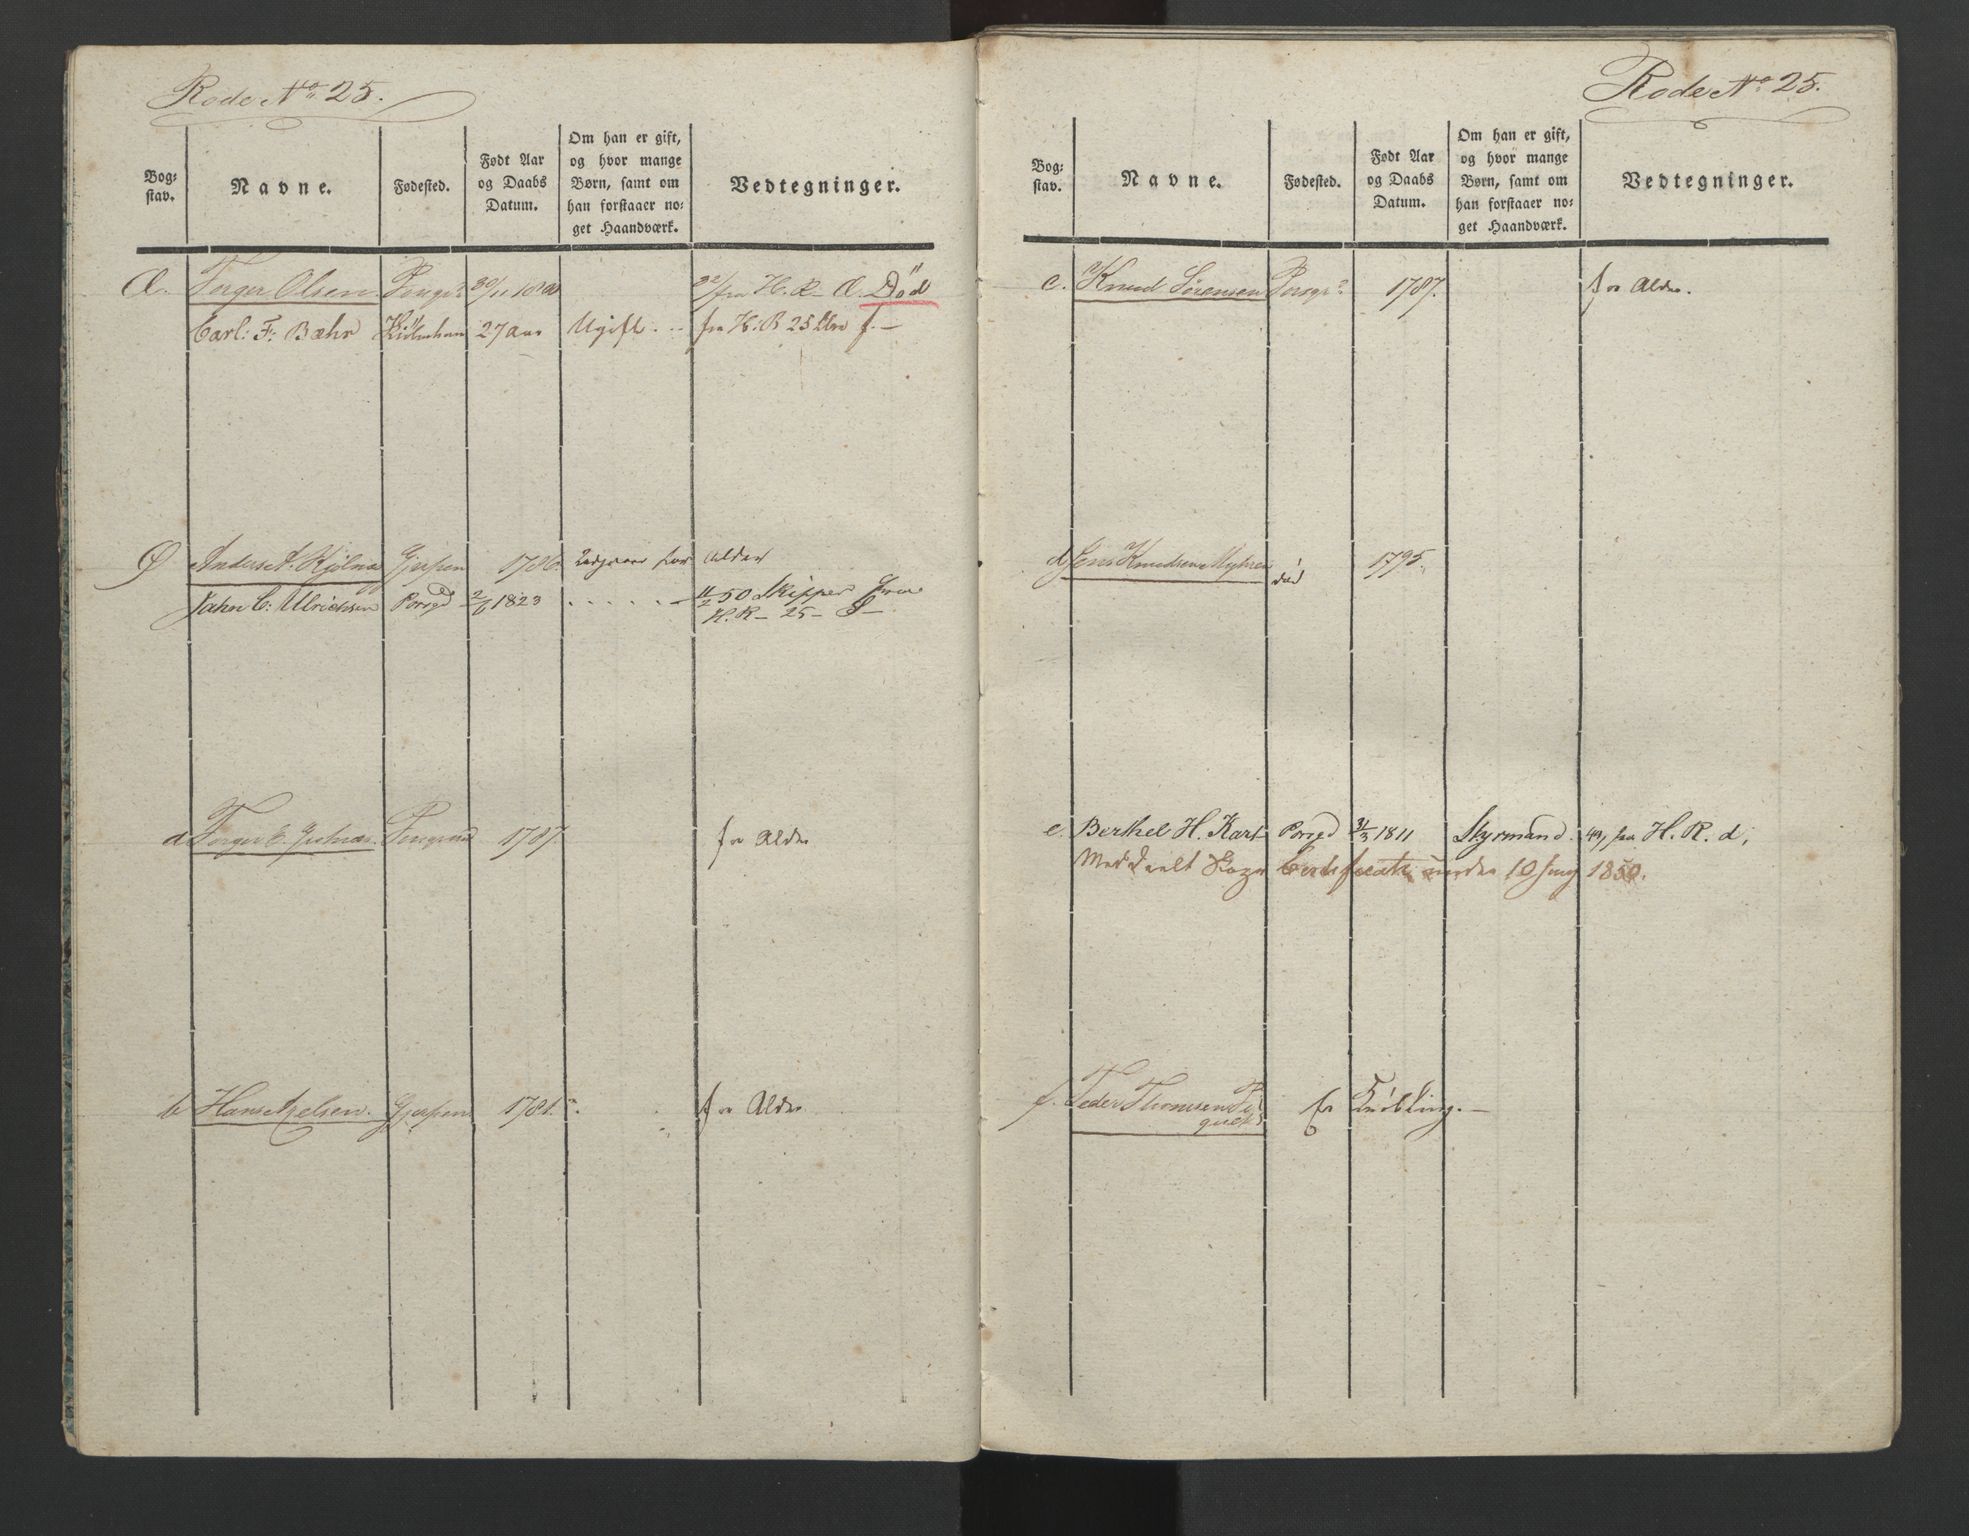 Rode No 25.
Bog=
stav.
Navne.
Fødested.
Født Aar
og Daabs
Datum.
Om han er gift,
og hvor mange
Børn, samt om
han forstaaer no=
get Haandværk.
Vedtegninger.
Æ. Torger Olsen Porsgr. 30/11 1800 fra H. R. Æ. Død
Carl: F: Bæhr Kiöbenhavn 27 aar Ugift fra H: R 25
Ø Anders A. Gjerpen 1786. Udgaaer for Alder
John C: Ulrichsen Porsgd 2/6 1823 11/2 50 Skipper fra
H. R - 25 - Ø
a Torger Porsgrund 1787. for Alder
b Hans Axelsen. Gjerpen 1781. for Alder
Rode No 25.
Bog=
stav.
Navne.
Fødested.
Født Aar
og Daabs
Datum.
Om han er gift,
og hvor mange
Børn, samt om
han forstaaer no=
get Haandværk.
Vedtegninger.
c. Knud Sørensen Porsgr. 1787. for Alder.
d Jens Knudsen Myhren död 1795.
e. Berthel H. Porsgd 31/3 1811 Styrmand. 49, fra H. R. d,
Meddeelt 10 Juny 1850.
f. Peder Thomsen er Krøbling.